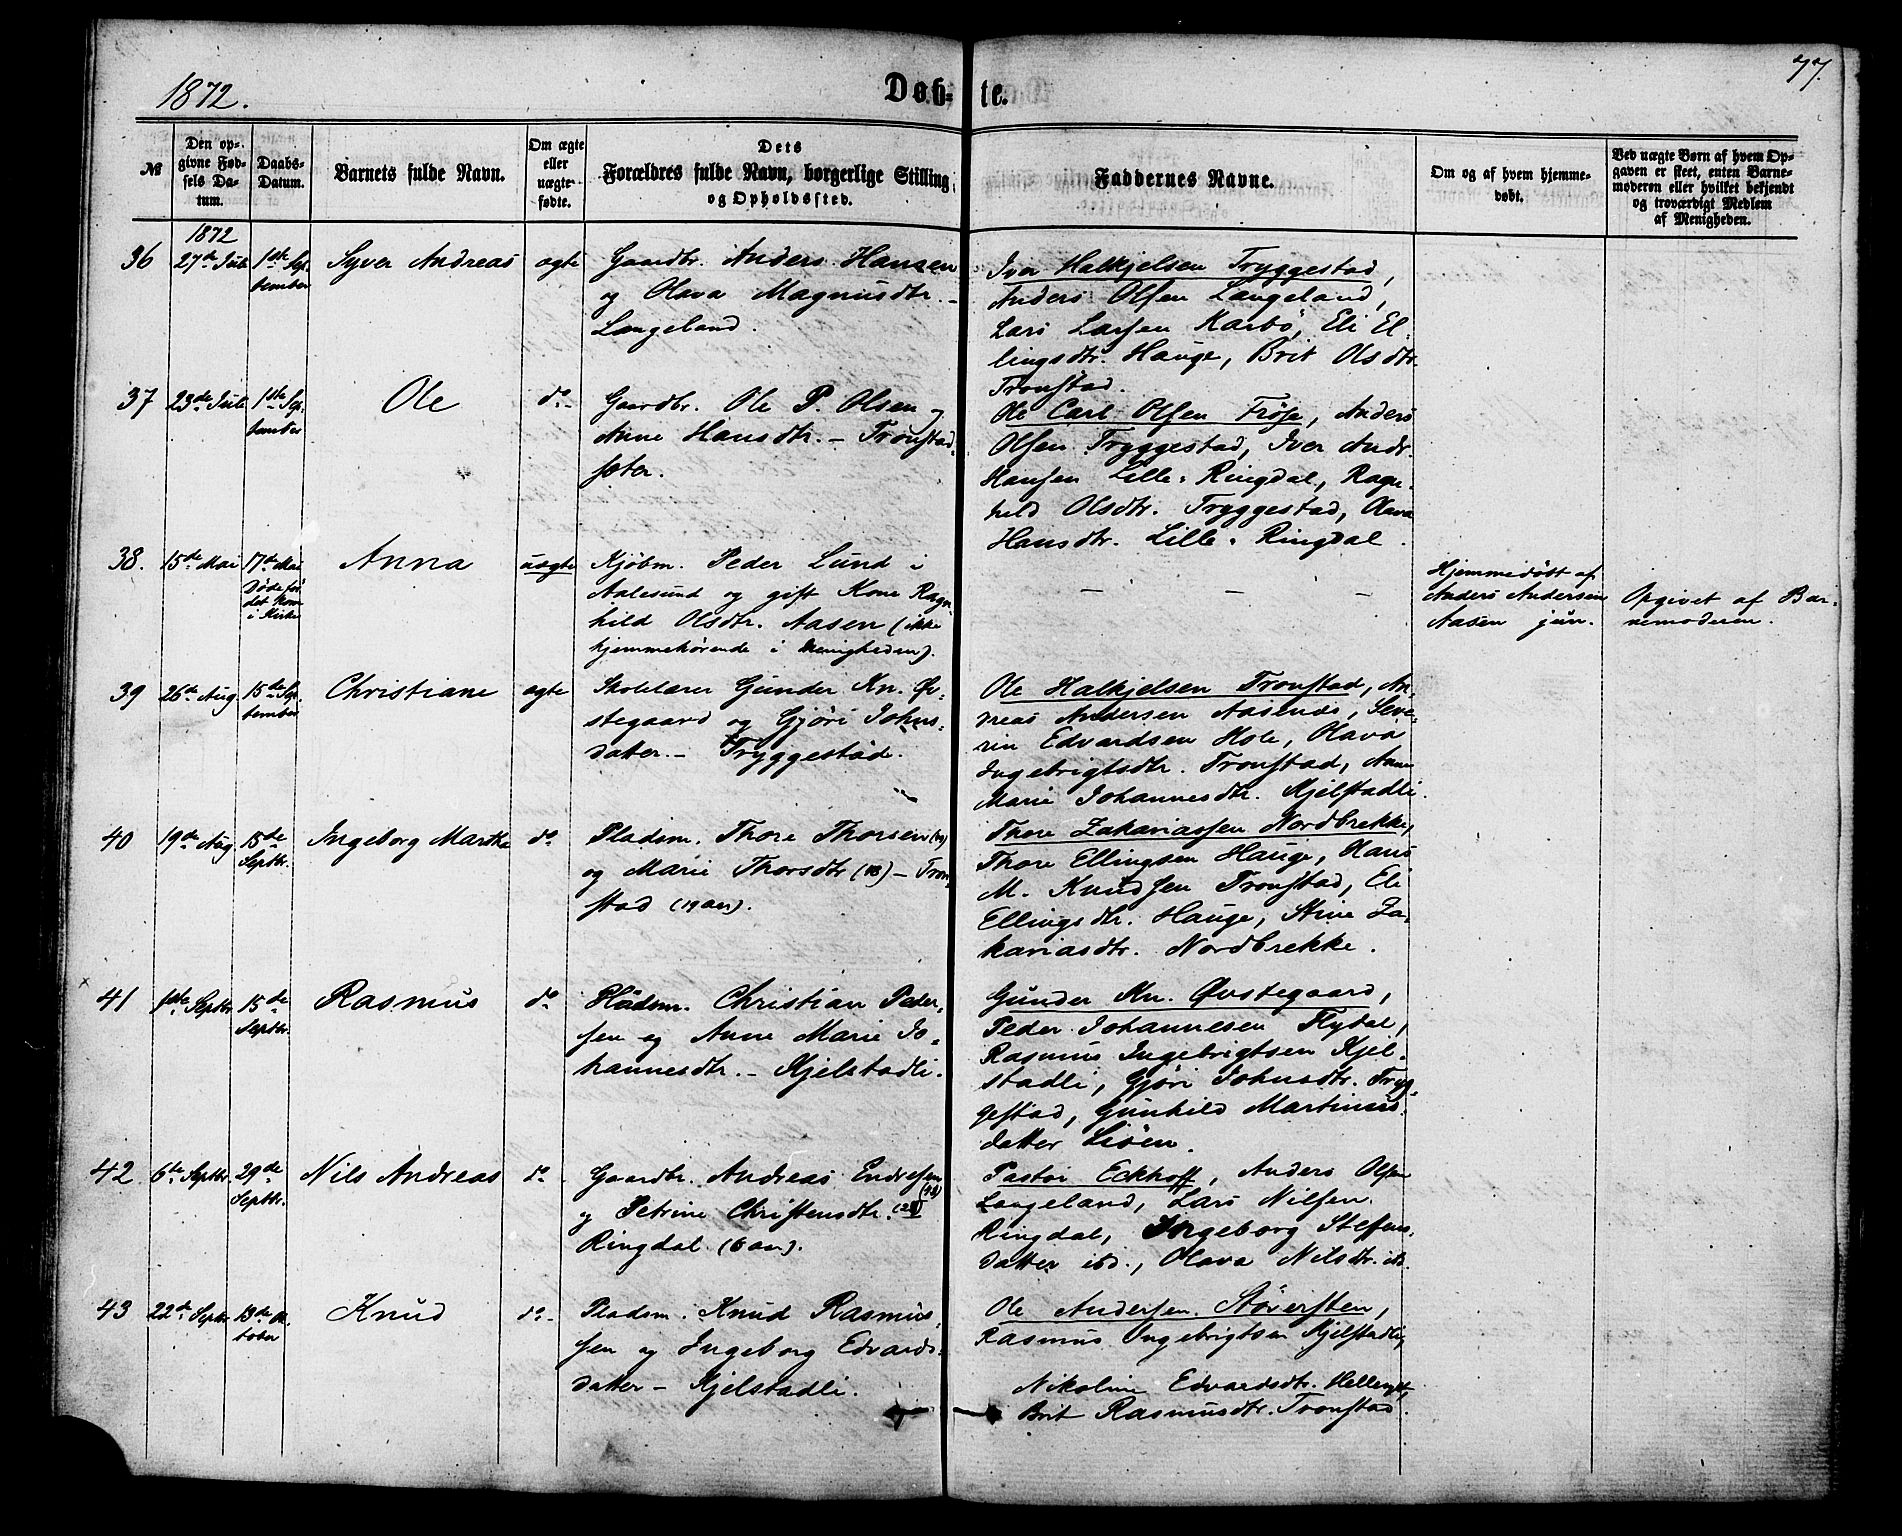 1872.
Døb-te.
77.
№
Den op-
givne Fød-
sels Da-
tum.
Daabs-
Datum.
Barnets fulde Navn.
Om ægte
eller
uægte
fødte.
Dets
Forældres fulde Navn, borgerlige Stilling
og Opholdssted.
Faddernes Navne.
Om og af hvem hjemme-
døbt.
Ved uægte Børn af hvem Op-
gaven er skeet, enten Barne-
moderen eller hvilket bekjendt
og troværdigt Medlem
af Menigheden.
1872
36
27de Juli
1ste Sep-
tember
Syver Andreas
ægte
Gaardbr. Anders Hansen
og Olava Magnusdtr. -
Langeland.
Iver Halkjelsen Tryggestad,
Anders Olsen Langeland,
Lars Larsen Karbø, Eli El-
lingsdtr. Hauge, Brit Olsdtr.
Tronstad.
37
23de Juli
1ste Sep-
tember
Ole
do-
Gaardbr. Ole P. Olsen og
Anne Hansdtr. - Tronstad-
sæter.
Ole Carl Olsen Frøse, Anders
Olsen Tryggestad, Iver Andr.
Hansen Lille-Ringdal, Ragn-
hild Olsdtr. Tryggestad, Olava
Hansdtr. Lille-Ringdal.
38.
15de Mai
17de Mai
Døde før
det kom
i Kirke
Anna
uægte
Kjøbm. Peder Lund i
Aalesund og gift Kone Ragn-
hild Olsdtr. Aasen (ikke
hjemmehørende i Menigheden).
- - - -
Hjemmedøbt af
Anders Andersen
Aasen jun.
Opgivet af Bar-
nemoderen.
39
26de Aug
15de Sep-
tember
Christiane
ægte
Skolelærer Gunder Kn. Øv-
stegaard og Gjøri Johns-
datter - Tryggestad.
Ole Halkjelsen Tronstad, An-
dreas Andersen Aasenes, Seve-
rin Edvardsen Hole, Olava
Ingebrigtsdtr. Tronstad, Anne
Marie Johannesdtr. Kjelstadli.
40
19de Aug
15de
Septbr.
Ingeborg Marthe
do
Pladsm. Thore Thorsen
og Marie Thorsdtr - Tron-
stad (19 aar).
Thore Zakariassen Nordbrekke,
Thore Ellingsen Hauge, Hans
M. Knudsen Tronstad, Eli
Ellingsdtr. Hauge, Stine Za-
kariasdtr. Nordbrekke.
41
1ste Septbr.
15de
Septbr.
Rasmus
do
Pladsm. Christian Peder-
sen og Anne Marie Jo-
hannesdtr. - Kjelstadli.
Gunder Kn. Øvstegaard,
Peder Johannesen Flydal,
Rasmus Ingebrigtsen Kjel-
stadli, Gjøri Johnsdtr. Tryg-
gestad, Gunhild Martinus-
datter Liøen.
42
6te Septbr.
29de
Septbr.
Nils Andreas
do
Gaardbr. Andreas Endresen
(48)
og Petrine Christensdtr.
Ringdal (6 aar).
Pastor Eckhoff, Anders Olsen
Langeland, Lars Nilsen
Ringdal, Ingeborg Steffens-
datter ibd., Olava Nilsdtr. ibd.
43
22de Septbr
13de Ok-
tober
Knud
do-
Pladsm. Knud Rasmus-
sen og Ingeborg Edvards-
datter - Kjelstadli.
Ole Andersen Støversten,
Rasmus Ingebrigtsen Kjelstadli,
Nikoline Edvardsdtr. Hellesylt,
Brit Rasmusdtr. Tronstad.